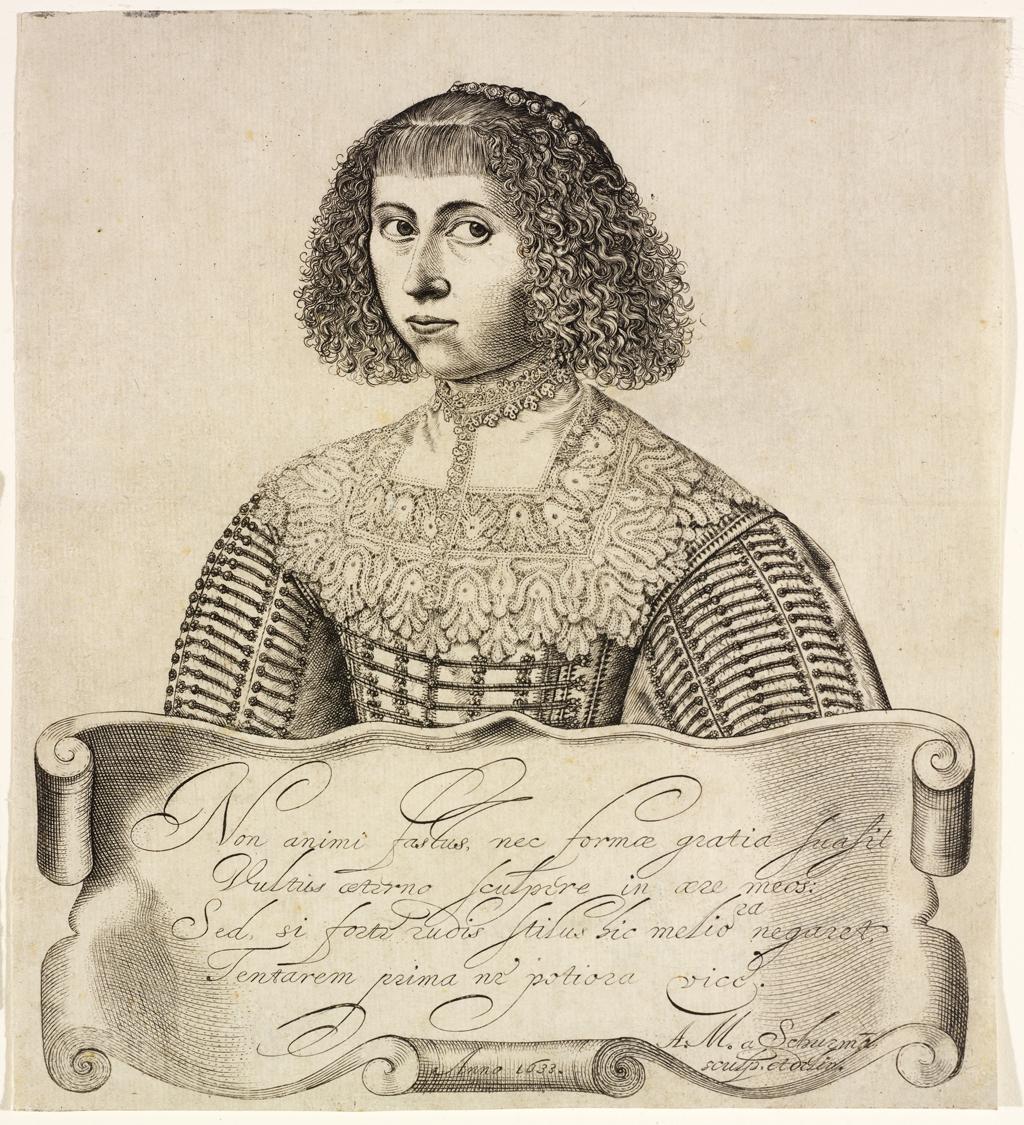 Non animi fastus, nec formæ gratia suasit
Vultus æterno sculpere in ære meos:
Sed, si forte rudis stilus hic meliora negaret,
Tentarem prima ne potiora vice.
A. M. a Schurmā
Anno 1633. sculp. et delin.